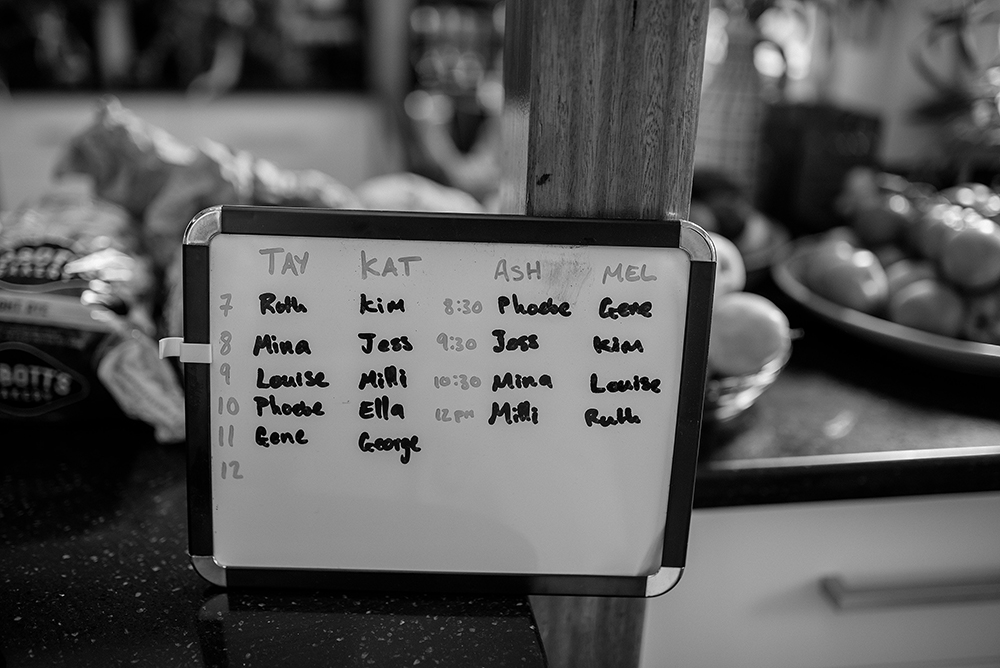 TAY KAT ASH MEL
7 Ruth Kim 8:30 Phoebe Gene
8 Mina Jess 9:30 Jess Kim
9 Louise Milli 10:30 Mina Louise
10 Phoebe Ella 12pm Milli Ruth
11 Gene George
12